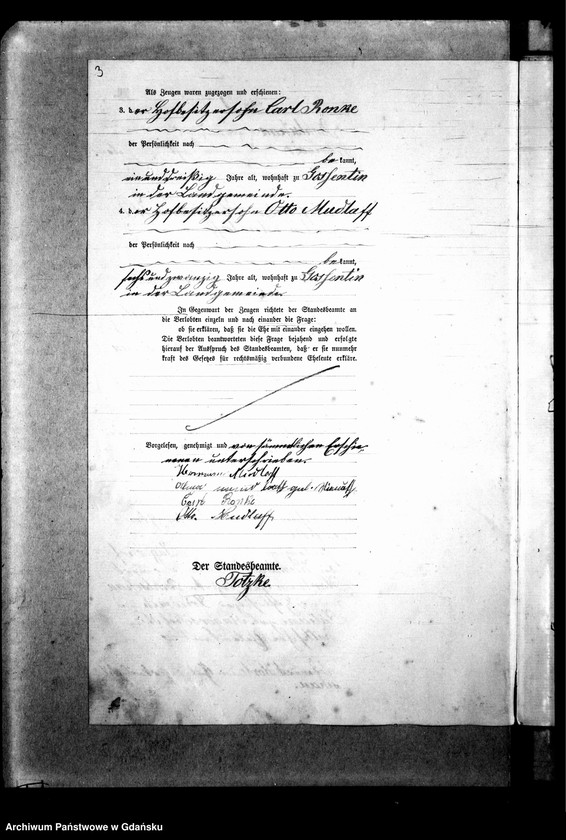 3
Als Zeugen waren zugezogen und erschienen:
3. der Hofbesitzersohn Carl Ronke
der Persönlichkeit nach
bekannt,
einunddreißig Jahre alt, wohnhaft zu Gossentin
in der Landgemeinde.
4. der Hofbesitzersohn Otto Mudlaff
der Persönlichkeit nach
bekannt,
sechsundzwanzig Jahre alt, wohnhaft zu Gossentin
in der Landgemeinde.
In Gegenwart der Zeugen richtete der Standesbeamte an
die Verlobten einzeln und nach einander die Frage:
ob sie erklären, daß sie die Ehe mit einander eingehen wollen.
Die Verlobten beantworteten diese Frage bejahend und erfolgte
hierauf der Ausspruch des Standesbeamten, daß er sie nunmehr
kraft des Gesetzes für rechtsmäßig verbundene Eheleute erkläre.
Vorgelesen, genehmigt und von sämmtlichen Erschie-
nenen unterschrieben.
Herrmann Mudlaff
geb.
Carl Ronke
Otto Mudlaff
Der Standesbeamte.
Totzke.
Archiwum Państwowe w Gdańsku